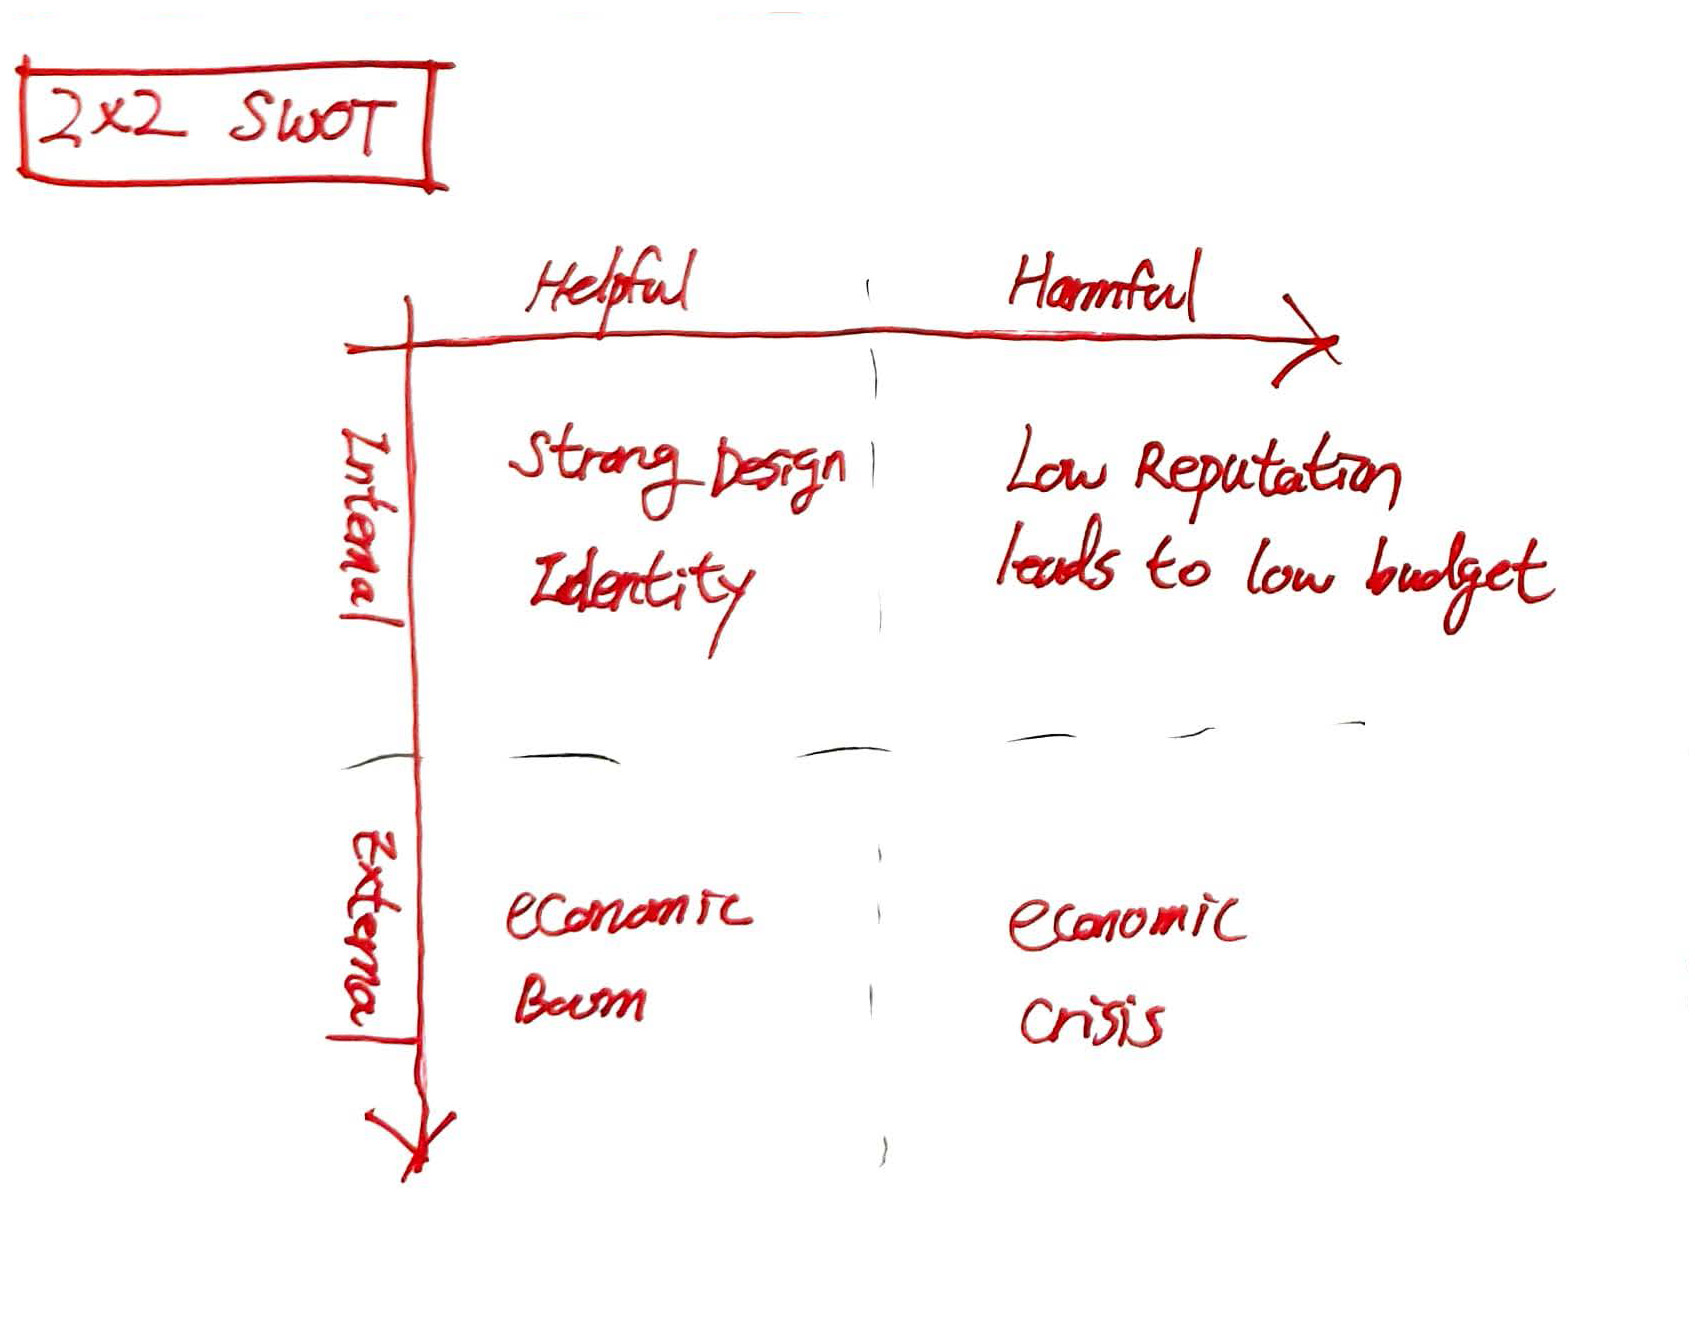 2x2 SWOT
Helpful Harmful
Internal
Strong Design
Identity
Low Reputation
leads to low budget
External
economic
Boom
economic
crisis